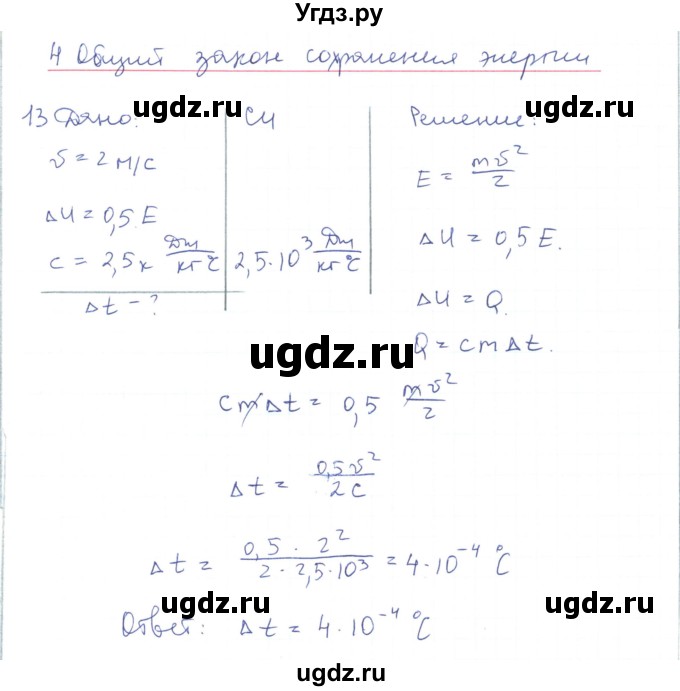 Угдз.ру
4 Общий закон сохранения энергии
ugdz.ru ugdz.ru
13 Дано: СИ Решение:
υ = 2 м/с
E = mυ²/2
ΔU = 0,5 E
ΔU = 0,5 E.
c = 2,5 к Дж/кг°C 2,5·10³ Дж/кг°C
Δt - ?
ΔU = Q.
ugdz.ru
Q = cmΔt.
cmΔt = 0,5 mυ²/2
Δt = 0,5υ²/2c
Δt = 0,5 · 2²/2 · 2,5·10³ = 4·10⁻⁴ °C
ugdz.ru ugdz.ru
Ответ: Δt = 4·10⁻⁴ °C
ugdz.ru